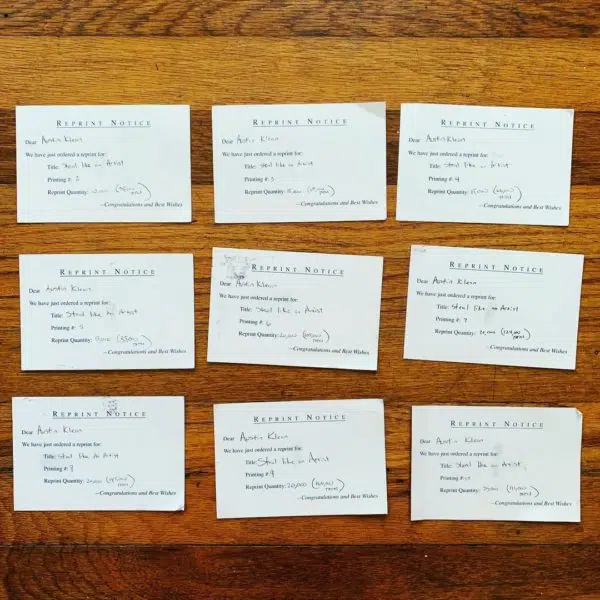 REPRINT NOTICE
Dear Austin Kleon
We have just ordered a reprint for:
Title: Steal like an Artist
Printing #: 2
Reprint Quantity:
—Congratulations and Best Wishes
REPRINT NOTICE
Dear Austin Kleon
We have just ordered a reprint for:
Title: Steal like an Artist
Printing #: 3
Reprint Quantity: 15,000
—Congratulations and Best Wishes
REPRINT NOTICE
Dear Austin Kleon
We have just ordered a reprint for:
Title: Steal like an Artist
Printing #: 4
Reprint Quantity: 15,000
—Congratulations and Best Wishes
REPRINT NOTICE
Dear Austin Kleon
We have just ordered a reprint for:
Title: Steal like an Artist
Printing #: 5
Reprint Quantity:
—Congratulations and Best Wishes
REPRINT NOTICE
Dear Austin Kleon
We have just ordered a reprint for:
Title: Steal like an Artist
Printing #: 6
Reprint Quantity: 20,000
—Congratulations and Best Wishes
REPRINT NOTICE
Dear Austin Kleon
We have just ordered a reprint for:
Title: Steal like an Artist
Printing #: 7
Reprint Quantity: 20,000
—Congratulations and Best Wishes
REPRINT NOTICE
Dear Austin Kleon
We have just ordered a reprint for:
Title: Steal like an Artist
Printing #: 8
Reprint Quantity: 20,000
—Congratulations and Best Wishes
REPRINT NOTICE
Dear Austin Kleon
We have just ordered a reprint for:
Title: Steal like an Artist
Printing #: 9
Reprint Quantity: 20,000
—Congratulations and Best Wishes
REPRINT NOTICE
Dear Austin Kleon
We have just ordered a reprint for:
Title: Steal like an Artist
Printing #: 10
Reprint Quantity:
—Congratulations and Best Wishes